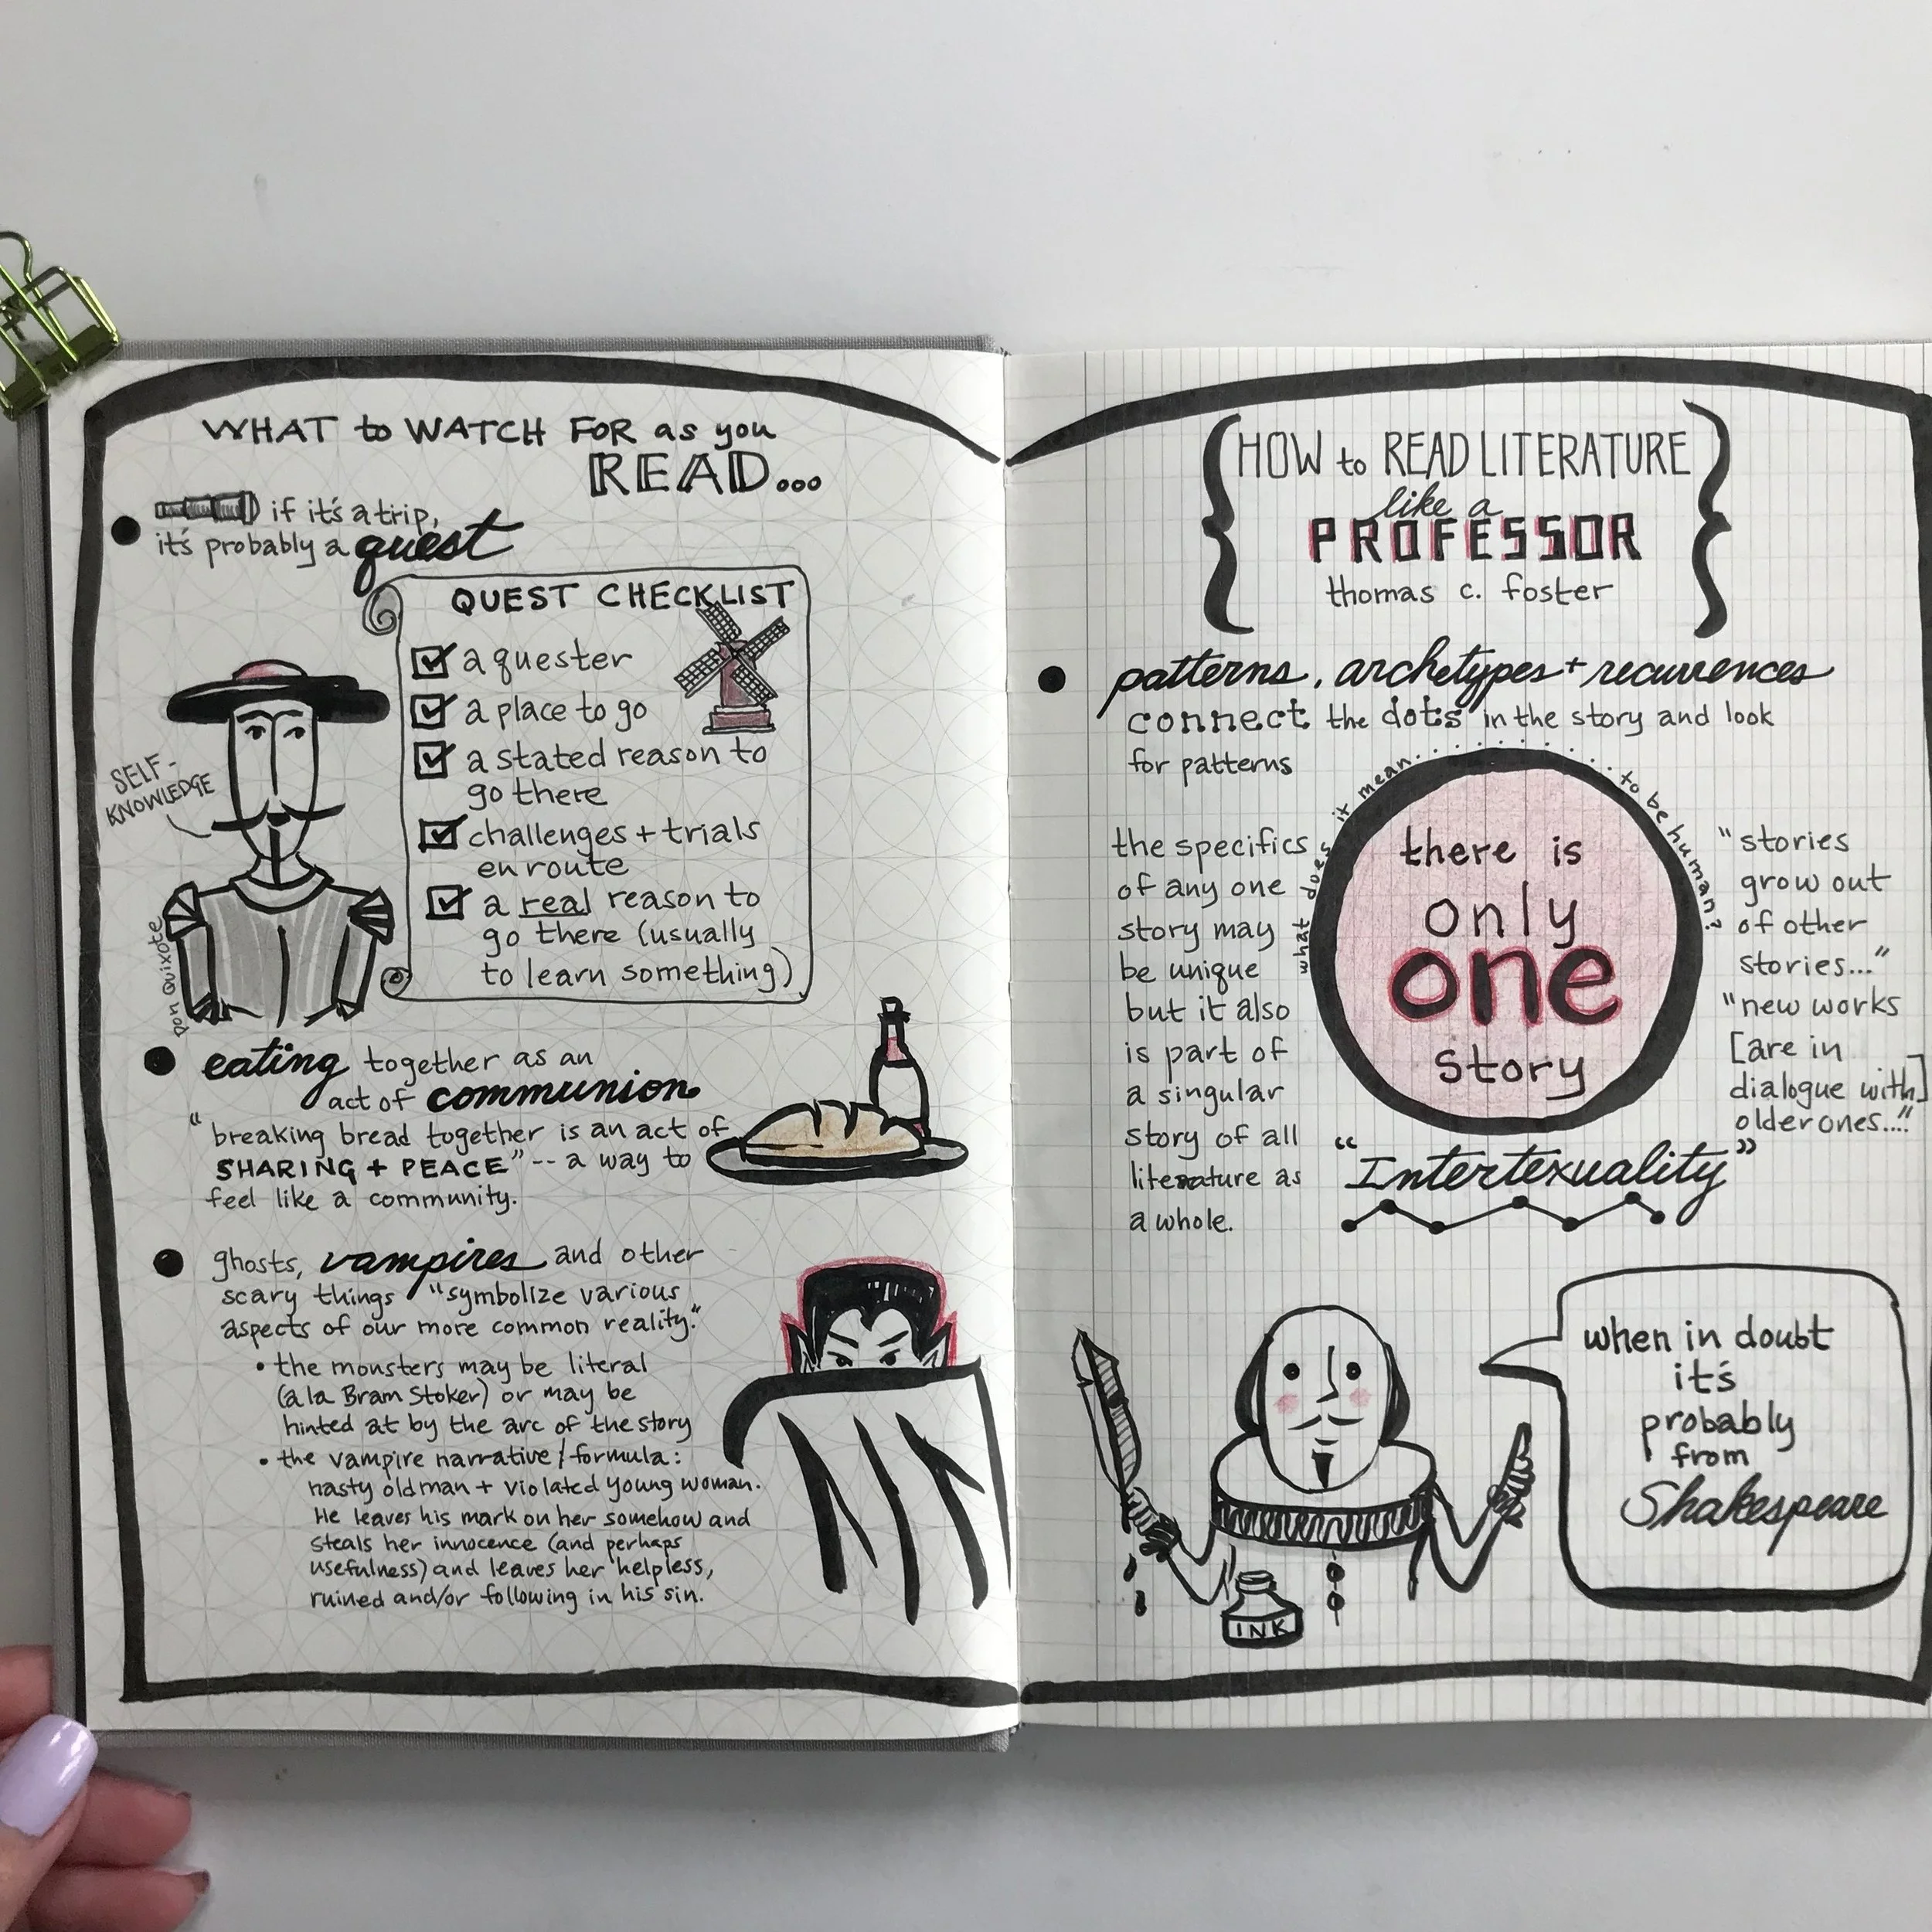 WHAT to WATCH FOR as you
READ...
if it's a trip,
it's probably a quest
QUEST CHECKLIST
a quester
a place to go
a stated reason to
go there
challenges + trials
en route
a real reason to
go there (usually
to learn something)
SELF-
KNOWLEDGE
Don Quixote
eating together as an
act of communion
"breaking bread together is an act of
SHARING + PEACE" -- a way to
feel like a community.
ghosts, vampires and other
scary things "symbolize various
aspects of our more common reality."
• the monsters may be literal
(a la Bram Stoker) or may be
hinted at by the arc of the story
• the vampire narrative/formula:
nasty old man + violated young woman.
He leaves his mark on her somehow and
steals her innocence (and perhaps
usefulness) and leaves her helpless,
ruined and/or following in his sin.
HOW to READ LITERATURE
like a
PROFESSOR
thomas c. foster
patterns, archetypes + recurrences
connect the dots in the story and look
for patterns
the specifics
of any one
story may
be unique
but it also
is part of
a singular
story of all
literature as
a whole.
what does it mean.........to be human?
there is
only
one
story
"stories
grow out
of other
stories..."
"new works
[are in
dialogue with]
older ones...."
"Intertexuality"
when in doubt
it's
probably
from
Shakespeare
INK